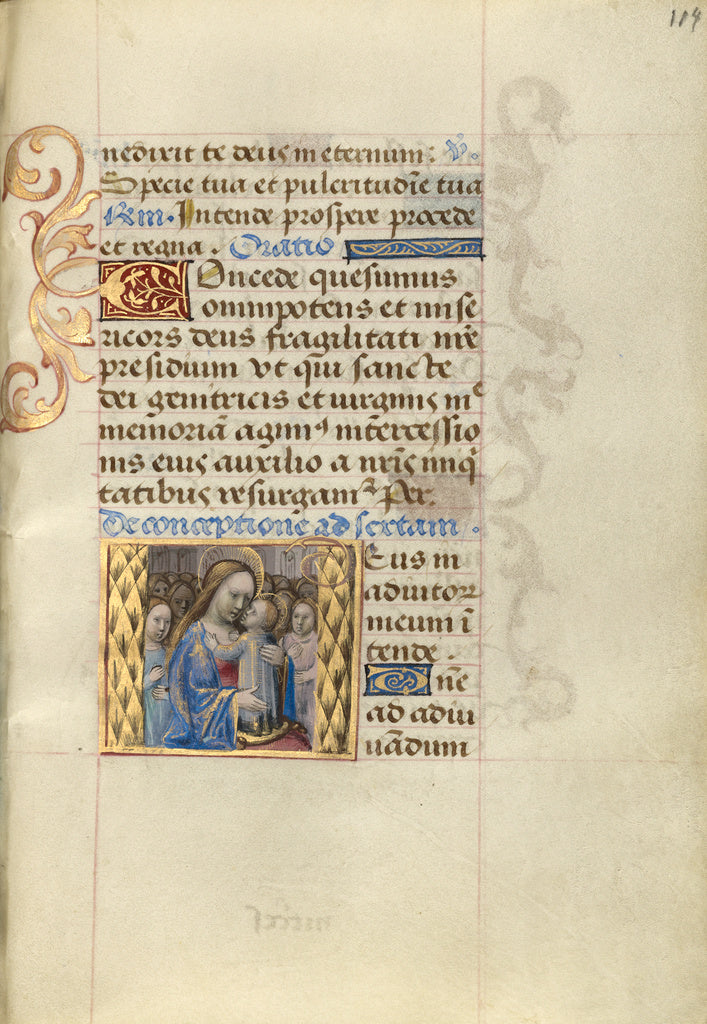 114
nedixit te deus in eternum: V.
Specie tua et pulcritudīe tua
Rm. Intende prospere procede
et regna. Oratio
Concede quesumus
omnipotens et mise
ricors deus fragilitati nr̄e
presidium vt qui sancte
dei genitricis et uirginis mͤ
memoriā agimꝰ intercessio
nis eius auxilio a nr̄is iniq̄
tatibus resurgamꝰ Per.
De conceptione ad sextam.
Deus in
adiutori
meum ī
tende.
Dn̄e
ad adiu
uādum